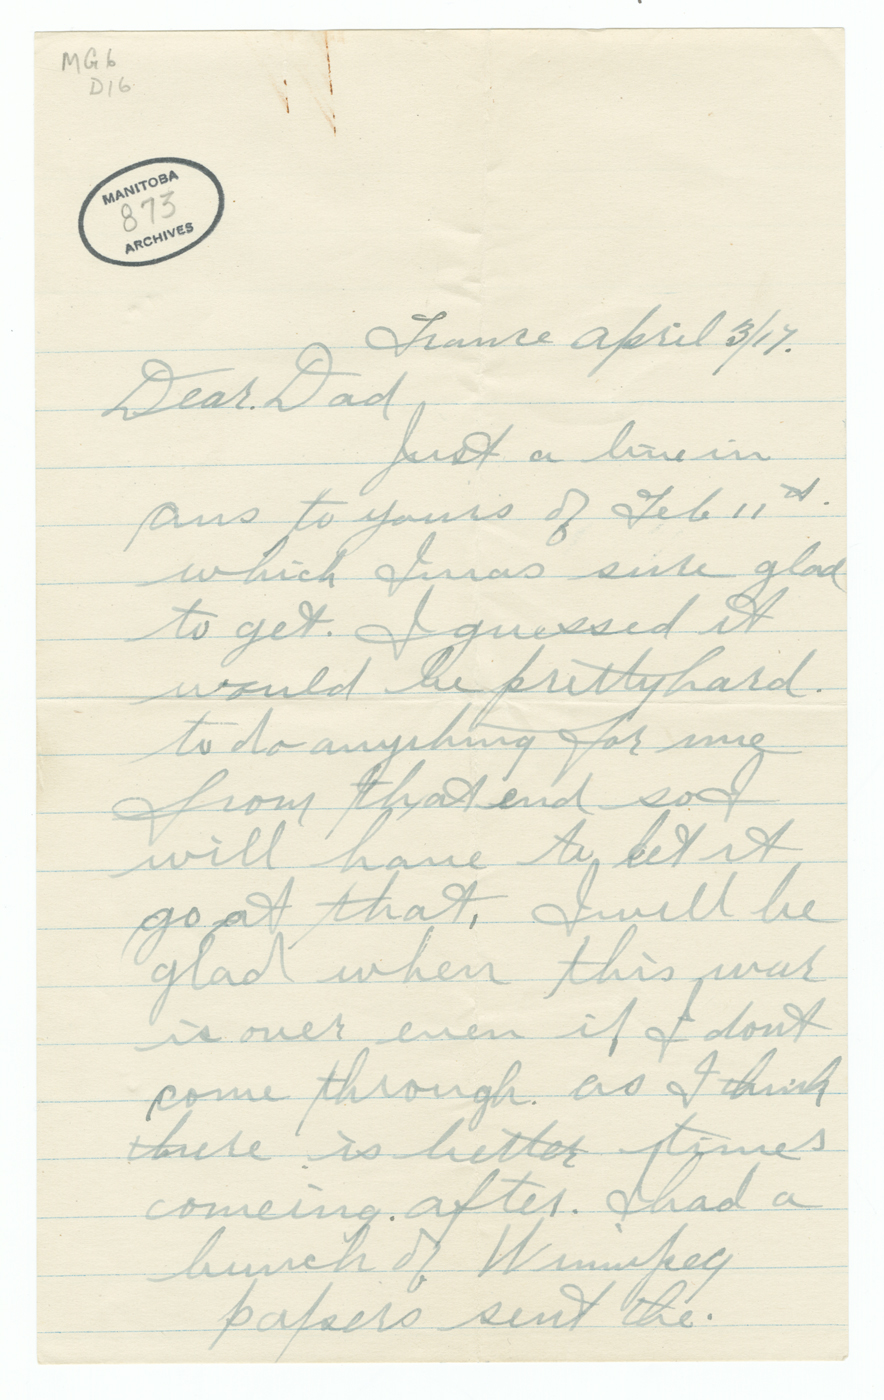 MG6
D16
MANITOBA
873
ARCHIVES
France april 3/17.
Dear. Dad
Just a line in
ans to yours of Feb 11th.
which I was sure glad
to get. I guessed it
would be pretty hard.
to do anything for me
from that end so I
will have to let it
go at that, I will be
glad when this war
is over even if I dont
come through. as I think
there is better times
comeing. after. I had a
bunch of Winnipeg
papers sent the.